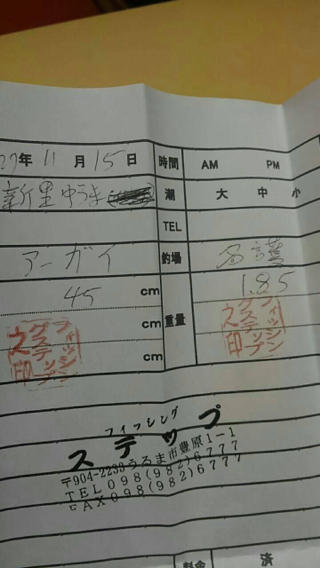 27年 11月 15日 時間 AM PM
新里ゆうま 潮 大 中 小
TEL
アーガイ 釣場 名護
45 cm 重量 1.85
cm
cm
フィッシングステップ之印
フィッシングステップ之印
フィッシング
ステップ
〒904-2233うるま市豊原1-1
TEL098(982)6777
FAX098(982)6777
料金 済